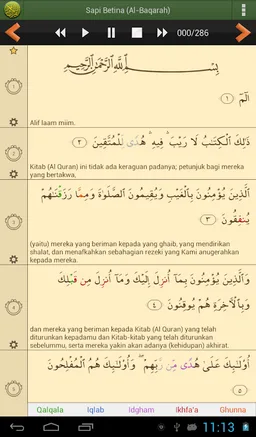 Sapi Betina (Al-Baqarah)
000/286
بِسْمِ ٱللَّهِ ٱلرَّحْمَٰنِ ٱلرَّحِيمِ
الٓمٓ ﴿١﴾
Alif laam miim.
ذَٰلِكَ ٱلْكِتَٰبُ لَا رَيْبَ ۛ فِيهِ ۛ هُدًى لِّلْمُتَّقِينَ ﴿٢﴾
Kitab (Al Quran) ini tidak ada keraguan padanya; petunjuk bagi mereka
yang bertakwa,
ٱلَّذِينَ يُؤْمِنُونَ بِٱلْغَيْبِ وَيُقِيمُونَ ٱلصَّلَوٰةَ وَمِمَّا رَزَقْنَٰهُمْ
يُنفِقُونَ ﴿٣﴾
(yaitu) mereka yang beriman kepada yang ghaib, yang mendirikan
shalat, dan menafkahkan sebahagian rezeki yang Kami anugerahkan
kepada mereka.
وَٱلَّذِينَ يُؤْمِنُونَ بِمَآ أُنزِلَ إِلَيْكَ وَمَآ أُنزِلَ مِن قَبْلِكَ
وَبِٱلْءَاخِرَةِ هُمْ يُوقِنُونَ ﴿٤﴾
dan mereka yang beriman kepada Kitab (Al Quran) yang telah
diturunkan kepadamu dan Kitab-kitab yang telah diturunkan
sebelummu, serta mereka yakin akan adanya (kehidupan) akhirat.
أُو۟لَٰٓئِكَ عَلَىٰ هُدًى مِّن رَّبِّهِمْ ۖ وَأُو۟لَٰٓئِكَ هُمُ ٱلْمُفْلِحُونَ
﴿٥﴾
Qalqala Iqlab Idgham Ikhfa'a Ghunna
11:13